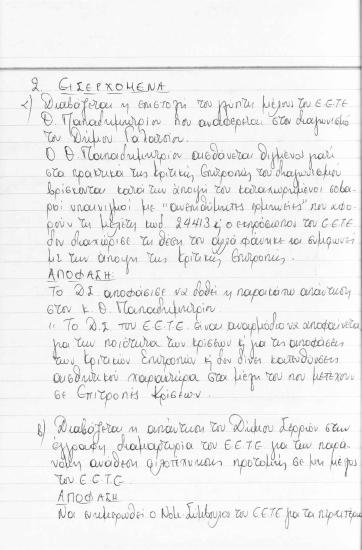 2. ΕΙΣΕΡΧΟΜΕΝΑ
α) Διαβάζεται η επιστολή του γλύπτη μέλους του Ε.Ε.Τ.Ε.
Θ. Παπαδημητρίου που αναφέρεται στον διαγωνισμό
του Δήμου Γαλατσίου.
Ο Θ. Παπαδημητρίου αισθάνεται θιγμένος γιατί
στα πρακτικά της κριτικής επιτροπής του διαγωνισμού
βρίσκονται κατά την άποψή του καταχωρημένοι σοβα-
ροί υπαινιγμοί με "ανεπιθύμητες ερμηνείες" που αφο-
ρούν τη μελέτη κωδ. 24413 κι ο εκπρόσωπος του Ε.Ε.Τ.Ε.
δεν διαχώρισε τη θέση του αλλά φάνηκε και σύμφωνος
με την άποψη της Κριτικής Επιτροπής.
ΑΠΟΦΑΣΗ:
Το Δ.Σ. αποφάσισε να δοθεί η παρακάτω απάντηση
στον κ. Θ. Παπαδημητρίου.
"Το Δ.Σ. του Ε.Ε.Τ.Ε. είναι αναρμόδιο να αποφαίνεται
για την ποιότητα των κρίσεων ή για τις αποφάσεις
των Κριτικών Επιτροπών ή να δίνει κατευθύνσεις
αισθητικού χαρακτήρα στα μέλη του που μετέχουν
σε Επιτροπές Κρίσεων.
β) Διαβάζεται η απάντηση του Δήμου Σερρών στην
έγγραφη διαμαρτυρία του Ε.Ε.Τ.Ε. για την παρά-
νομη ανάθεση φιλοτέχνησης προτομής σε μη μέλος
του Ε.Ε.Τ.Ε.
ΑΠΟΦΑΣΗ
Να ενημερωθεί ο Νομ. Σύμβουλος του Ε.Ε.Τ.Ε για τα περαιτέρω